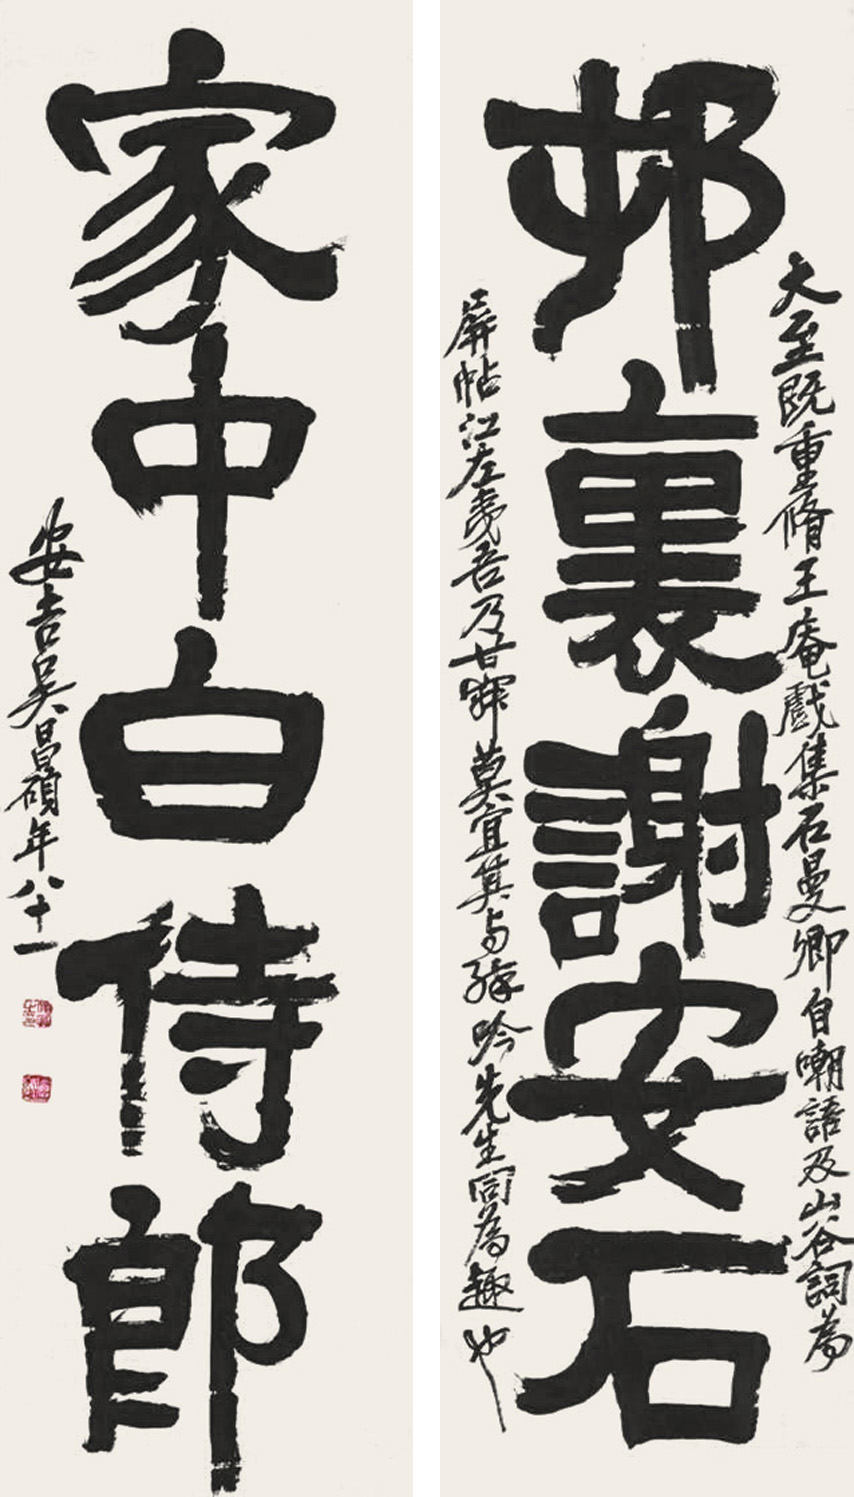 大至既重脩王庵戲集石曼卿自嘲語及山谷詞為
邨裏謝安石
屏帖江左夷吾乃甘莫宜其与吟先生同為趣也
家中白侍郎
安吉吳昌碩年八十一